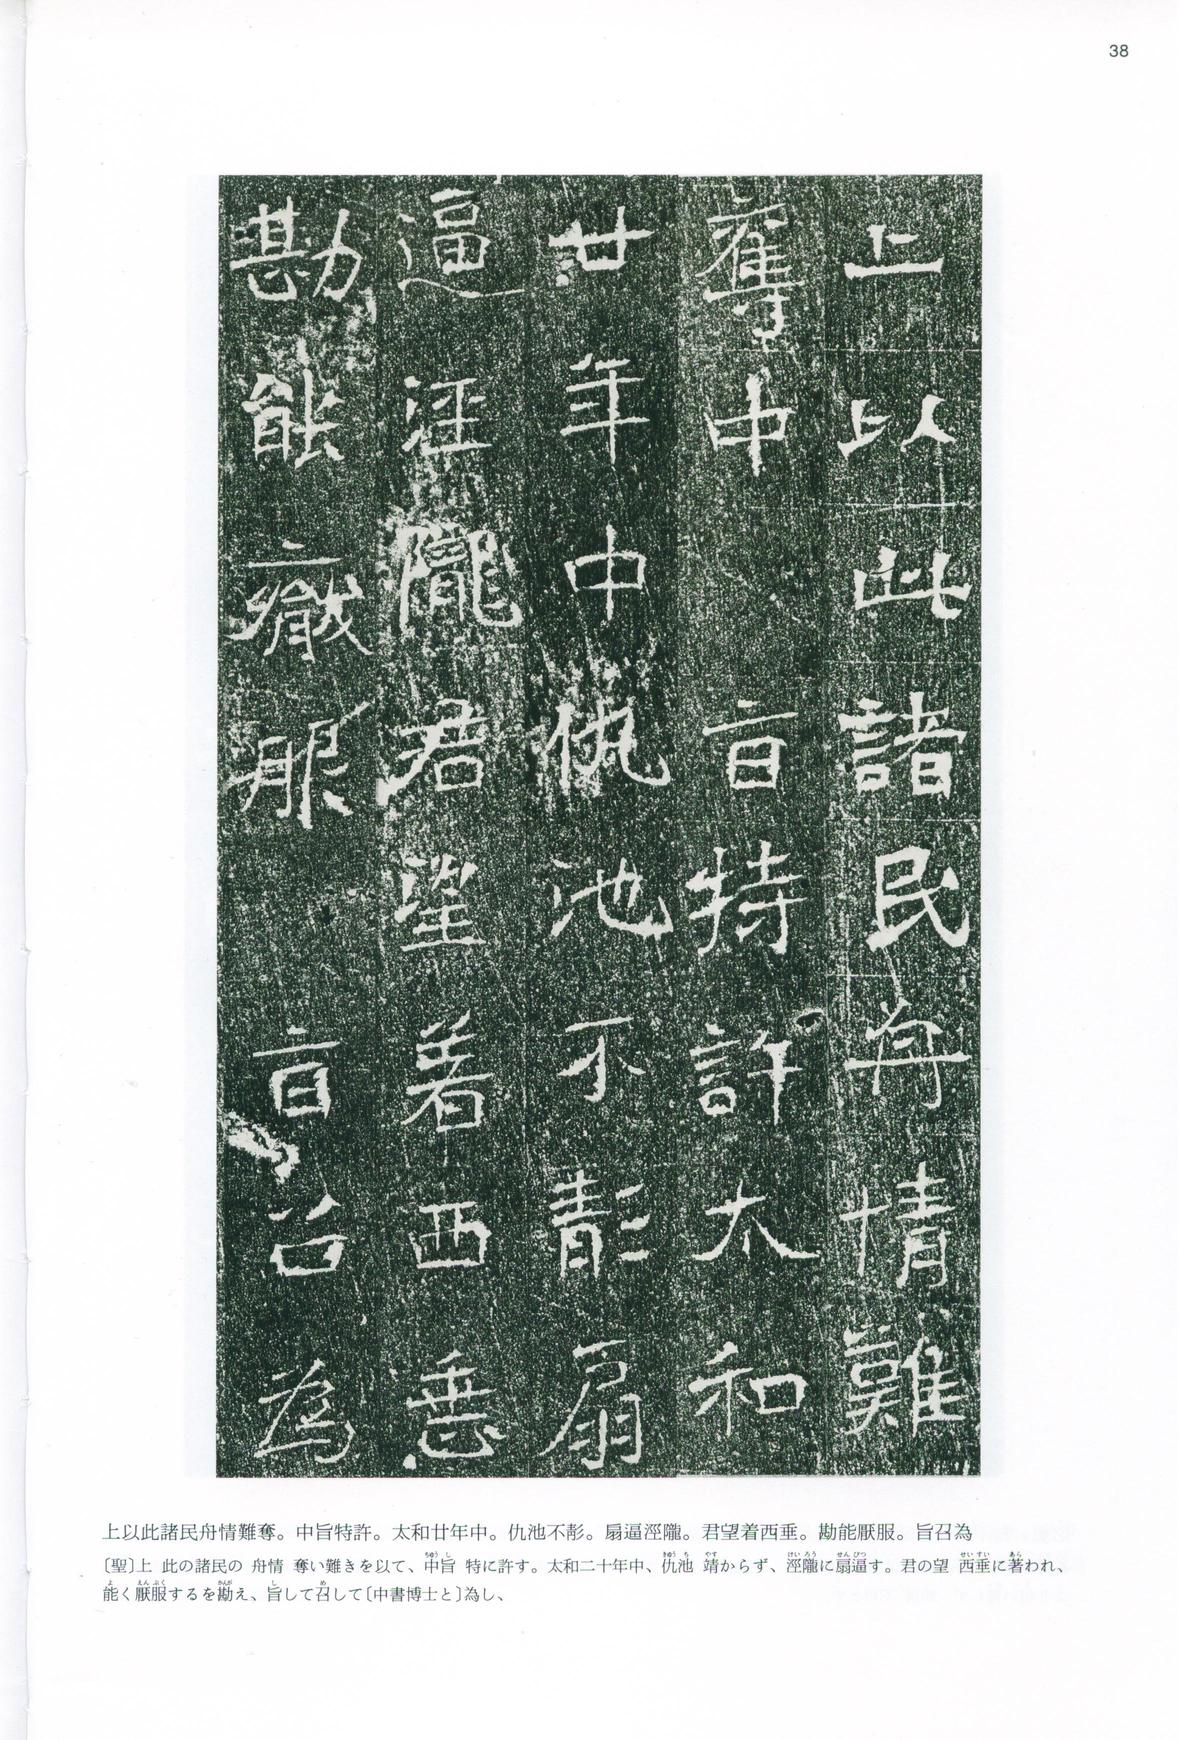 38
上以此諸民舟情難
奪中旨特許太和
廿年中仇池不彭扇
逼涇隴君望着西垂
勘能厭服旨召為
上以此諸民舟情難奪。中旨特許。太和廿年中。仇池不彭。扇逼涇隴。君望着西垂。勘能厭服。旨召為
〔聖〕上 此の諸民の 舟情 奪い難きを以て、中旨 特に許す。太和二十年中、仇池 靖からず、涇隴に扇逼す。君の望 西垂に著われ、
能く厭服するを勘え、旨して召して〔中書博士と〕為し、